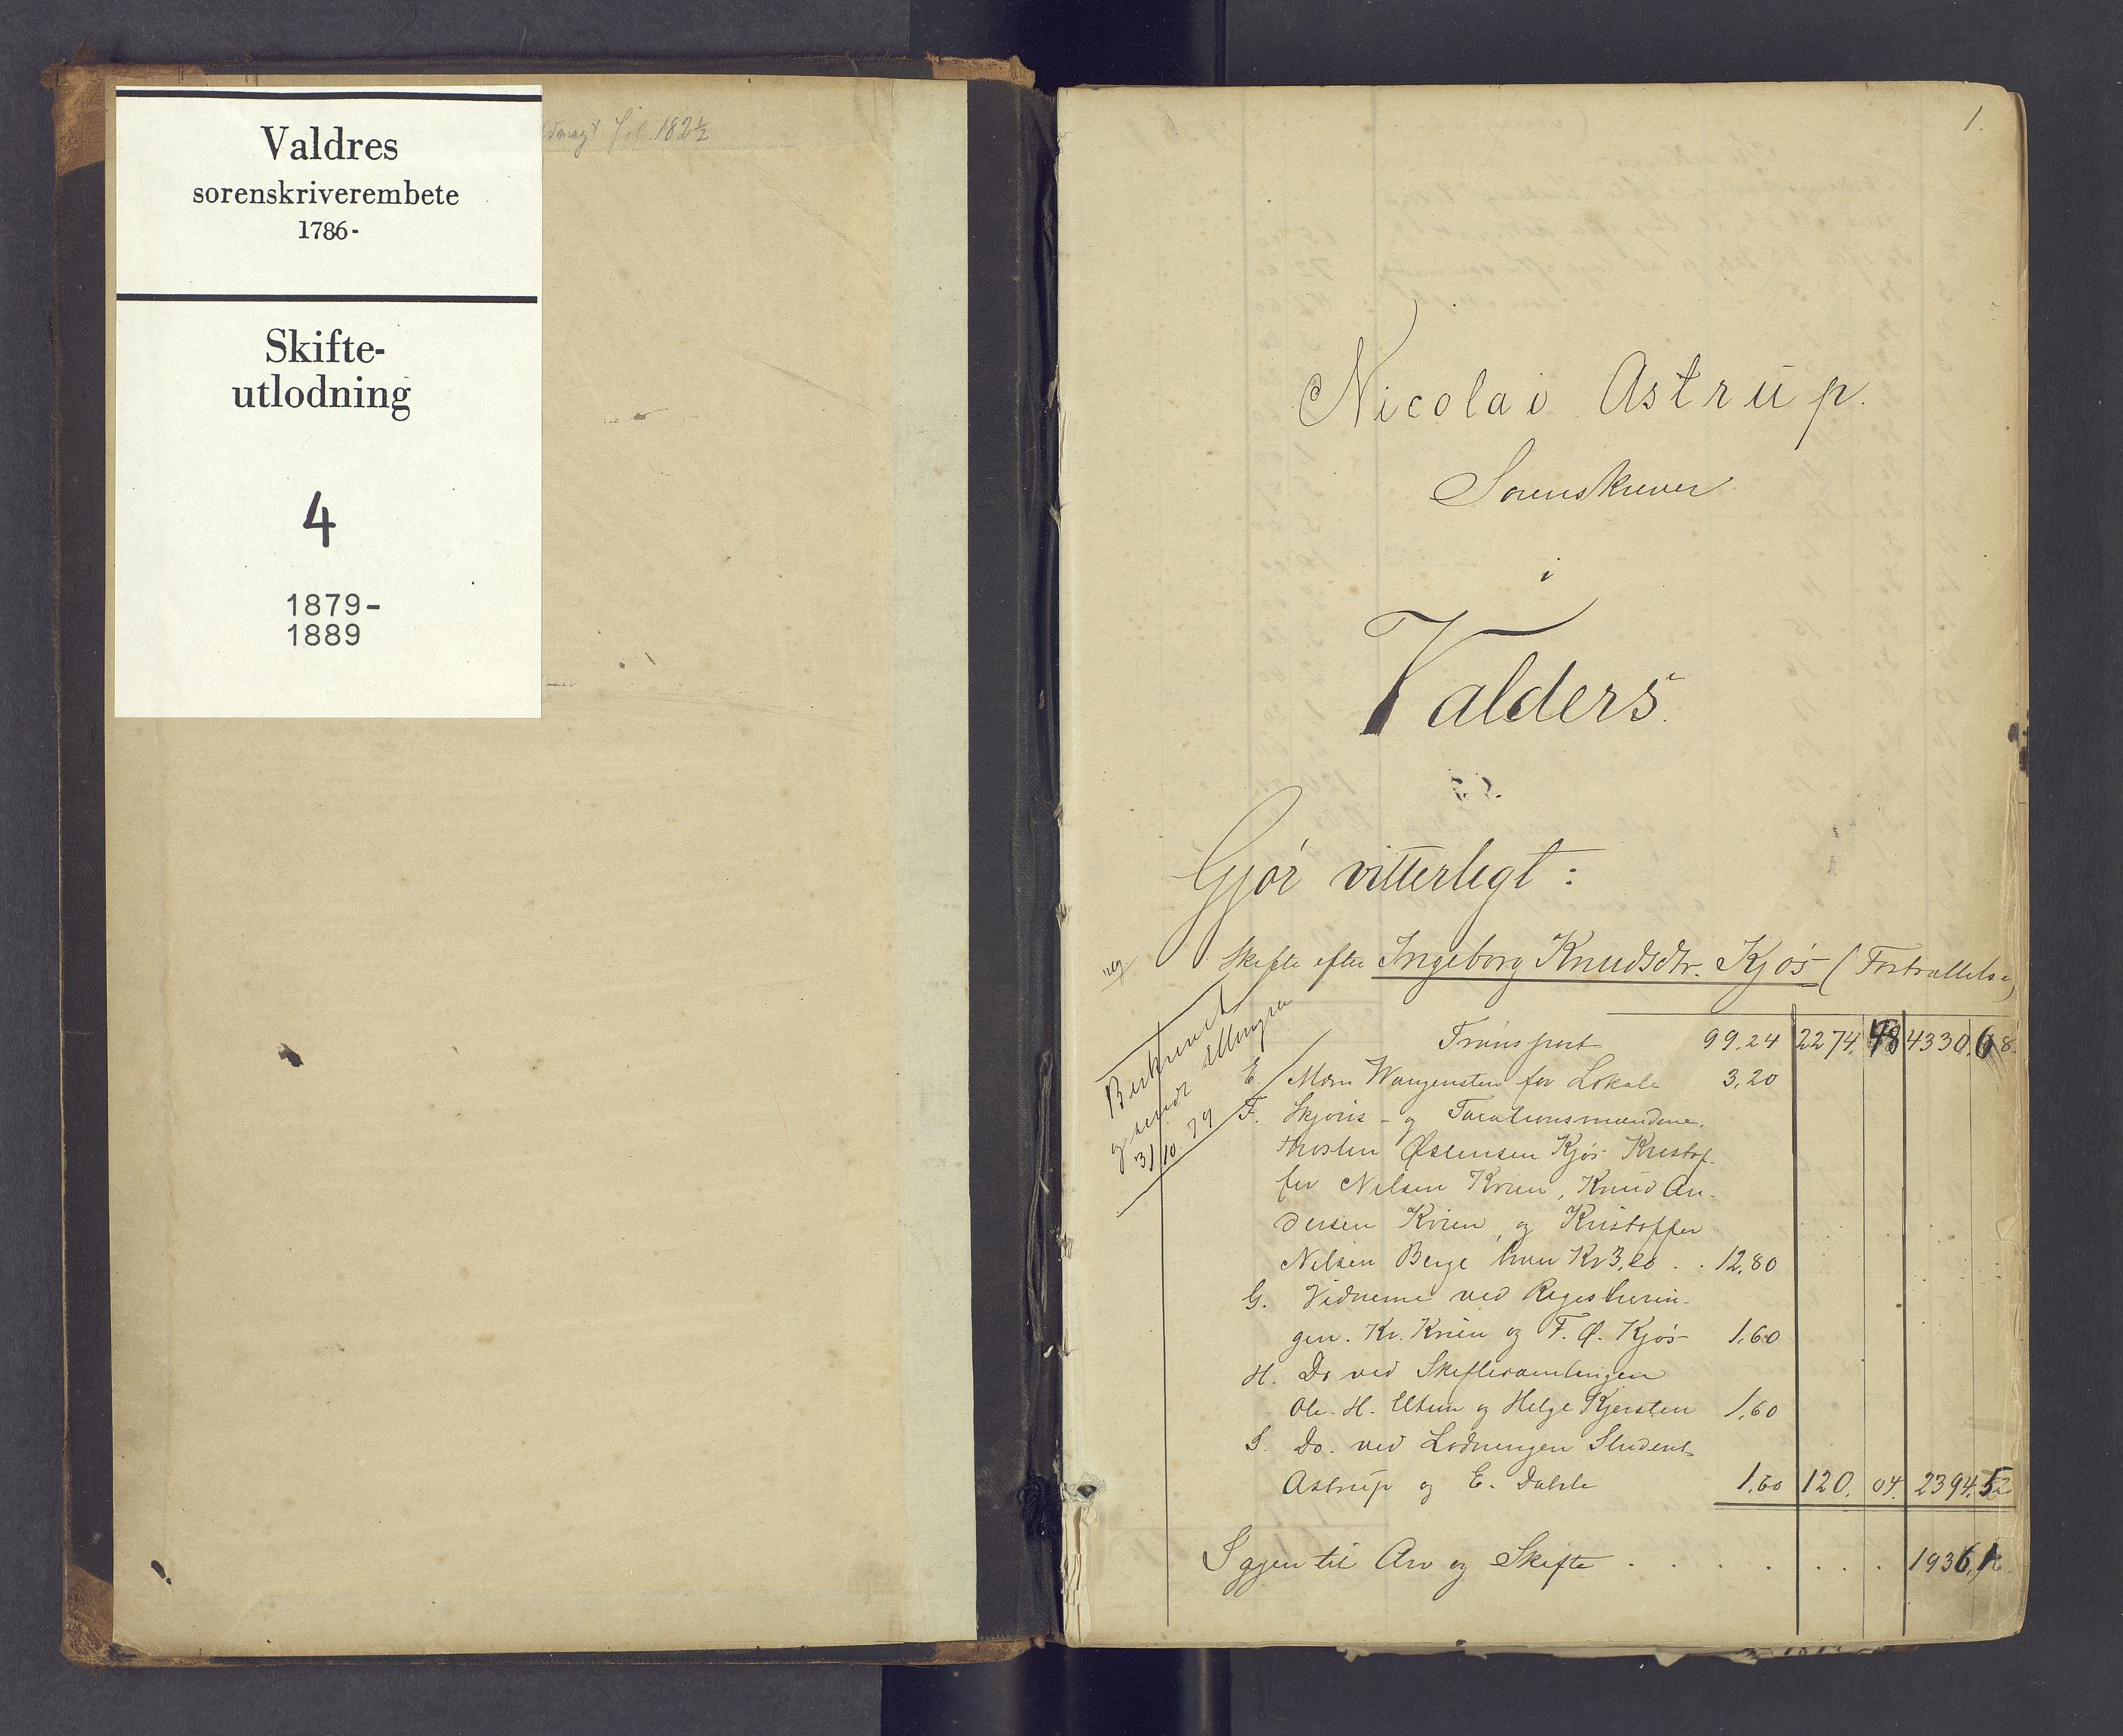 Valdres
sorenskriverembete
1786-
Skifte-
utlodning
4
1879-
1889
fol. 182½
1.
Nicolai Astrup.
Sorenskriver
i
Valders.
Gjør vitterlegt:
Skifte efter Ingeborg Knudsdtr. Kjøs (Fortsættelse)
Bekræftet
31/10. 79
Transport 99,24 2274, 48 4330, 68.
E. Wangensten for Lokale 3,20
F. Skjøns- og Taxationsmændene.
Thosten Østensen Kjøs Kristof-
fer Nilsen Kvien, Knud An-
dersen Kvien, og Kristoffer
Nilsen Berge hver Kr 3,20 . . 12,80
G. Vidnerne ved Registerin-
gen. Kr. Kvien og F. Ø. Kjøs 1,60
H. Do ved Skiftesamlingen
Ole. H. og Helge Kjersten 1,60
I. Do. ved Lodningen Student
Astrup og E. Dahle 1,60 120, 04. 2394, 52
Igjen til Arv og Skifte . . . . . . . 1936, 16.